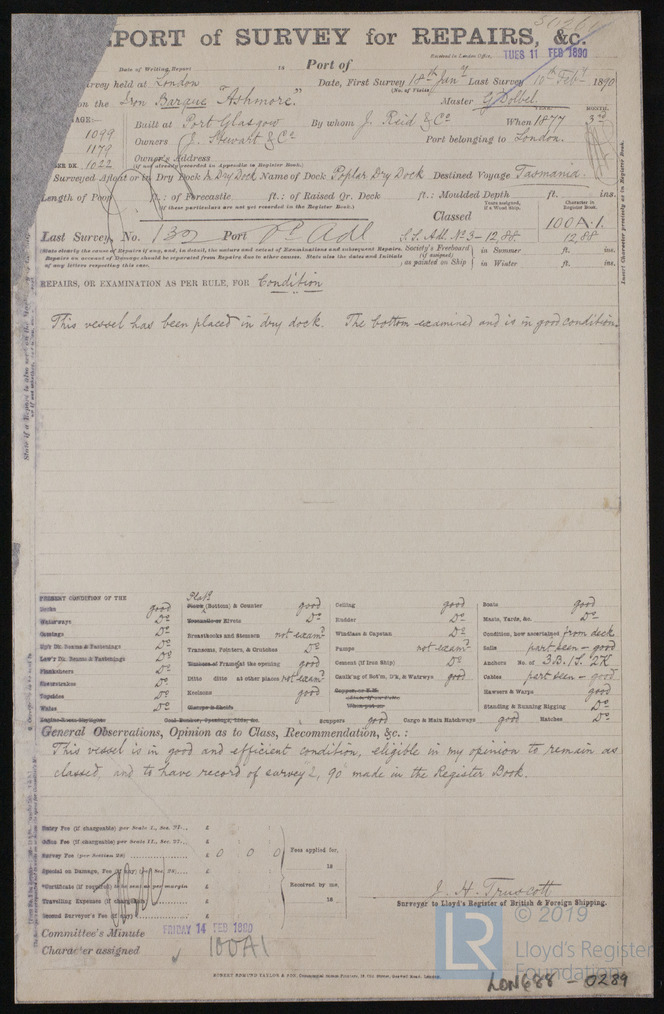 PORT of SURVEY for REPAIRS, &c.
Received in London Office, TUES 11 FEB 1890
Date of Writing Report 18 Port of
urvey held at London Date, First Survey 18th Jany Last Survey 10th Feby 1890
(No. of Visits)
on the Iron Barque "Ashmore." Master G. Dolbel
AGE:— YEAR. MONTH.
1099 Built at Port Glasgow By whom J. Reid & Co When 1877 3rd
1179 Owners J. Stewart & Co Port belonging to London.
Owner's Address
DER DK. 1022 (if not already recorded in Appendix to Register Book.)
Surveyed Afloat or in Dry Dock In Dry Dock Name of Dock Poplar Dry Dock Destined Voyage Tasmania.
Length of Poop ft.: of Forecastle ft.: of Raised Qr. Deck ft.: Moulded Depth ft. ins.
(If these particulars are not yet recorded in the Register Book.)
Years assigned, if a Wood Ship. Character in Register Book.
Classed 100A.1.
Last Survey, No. 130 Port Pt Adl S.S. Adl. No 3-12,88. 12,88
(State clearly the cause of Repairs if any, and, in detail, the nature and extent of Examinations and subsequent Repairs.
Repairs on account of Damage should be separated from Repairs due to other causes. State also the dates and initials
of any letters respecting this case.
Society's Freeboard (if assigned) as painted on Ship in Summer ft. ins.
in Winter ft. ins.
Insert Character precisely as in Register Book.
REPAIRS, OR EXAMINATION AS PER RULE, FOR Condition
This vessel has been placed in dry dock. The bottom examined and is in good condition.
PRESENT CONDITION OF THE
Decks good
Waterways Do
Comings Do
Up'r Dk. Beams & Fastenings Do
Low'r Dk. Beams & Fastenings Do
Planksheers Do
Sheerstrakes Do
Topsides Do
Wales Do
Engine-Room Skylights
Platg (Bottom) & Counter good
Treenails or Rivets Do
Breasthooks and Stemson not examd
Transoms, Pointers, & Crutches Do
Timbers of Frames at the opening good
Ditto ditto at other places not examd
Keelsons good
Clamps & Shelfs
Coal Bunker, Openings, Lids, &c.
Ceiling good
Rudder Do
Windlass & Capstan Do
Pumps not examd
Cement (if Iron Ship) Do
Caulk'ng of Bot'm, D'k, & Watrwys good
Copper, or Y.M.
When put on
Scuppers good Cargo & Main Hatchways good Hatches Do
Boats good
Masts, Yards, &c. Do
Condition, how ascertained from deck
Sails part seen - good
Anchors No. of 3.B. 1S. 2K
Cables part seen - good
Hawsers & Warps good
Standing & Running Rigging Do
General Observations, Opinion as to Class, Recommendation, &c.:
This vessel is in good and efficient condition, eligible in my opinion to remain as
classed, and to have record of survey 2, 90 made in the Register Book.
Entry Fee (if chargeable) per Scale I., Sec. 27... £
Office Fee (if chargeable) per Scale II., Sec. 27... £
Survey Fee (per Section 28) £ 0 0 0
Special on Damage, Fee (if any) (per Sec. 28) £
Certificate (if required) to be sent as per margin £
Travelling Expenses (if chargeable) £
Second Surveyor's Fee (if any) £
Fees applied for,
18
Received by me,
18
J. H. Truscott
Surveyor to Lloyd's Register of British & Foreign Shipping.
Committee's Minute FRIDAY 14 FEB 1890
Character assigned 100A1
© 2019
LR
Lloyd's Register
Foundation
LON688-0289